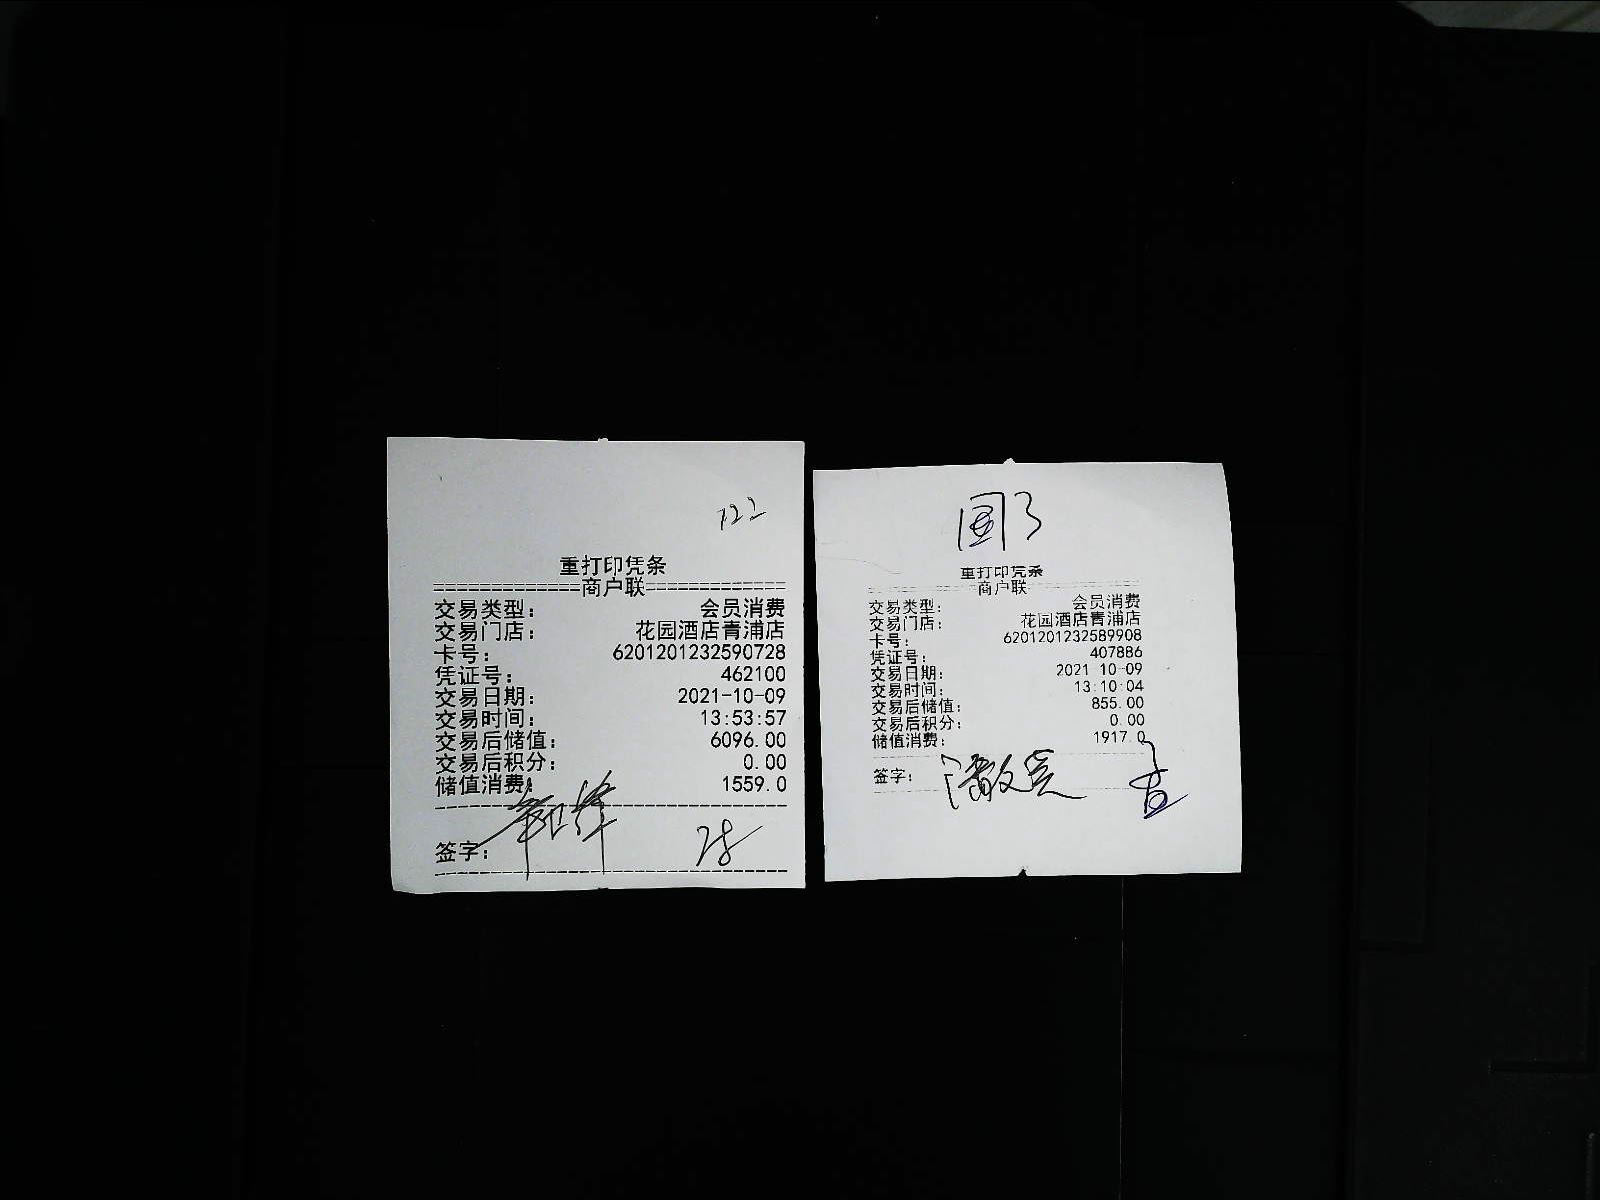 122
重打印凭条
商户联
交易类型： 会员消费
交易门店： 花园酒店青浦店
卡号： 6201201232590728
凭证号： 462100
交易日期： 2021-10-09
交易时间： 13:53:57
交易后储值： 6096.00
交易后积分： 0.00
储值消费： 1559.0
签字：
重打印凭条
商户联
交易类型： 会员消费
交易门店： 花园酒店青浦店
卡号： 6201201232589908
凭证号： 407886
交易日期： 2021-10-09
交易时间： 13:10:04
交易后储值： 855.00
交易后积分： 0.00
储值消费： 1917.0
签字：